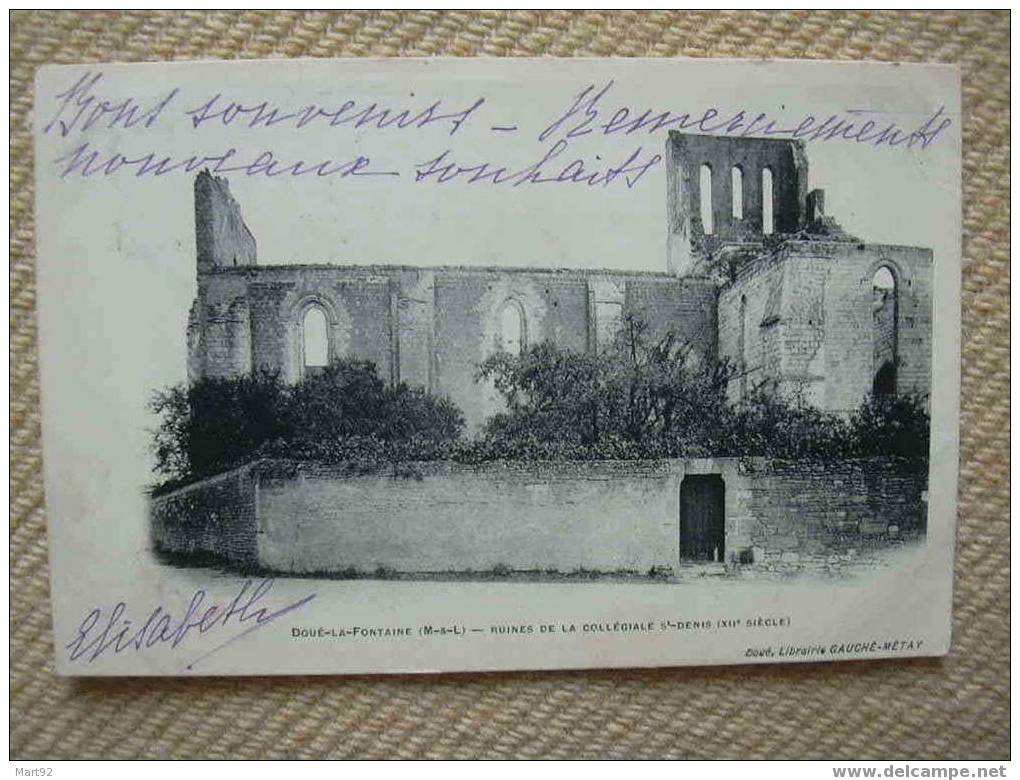 Bons souvenirs - Remerciements
nouveaux souhaits
Elisabeth
DOUÉ-LA-FONTAINE (M-&-L) — RUINES DE LA COLLÉGIALE St-DENIS (XIIe SIÈCLE)
Doué, Librairie GAUCHÉ-MÉTAY
Mart92
www.delcampe.net